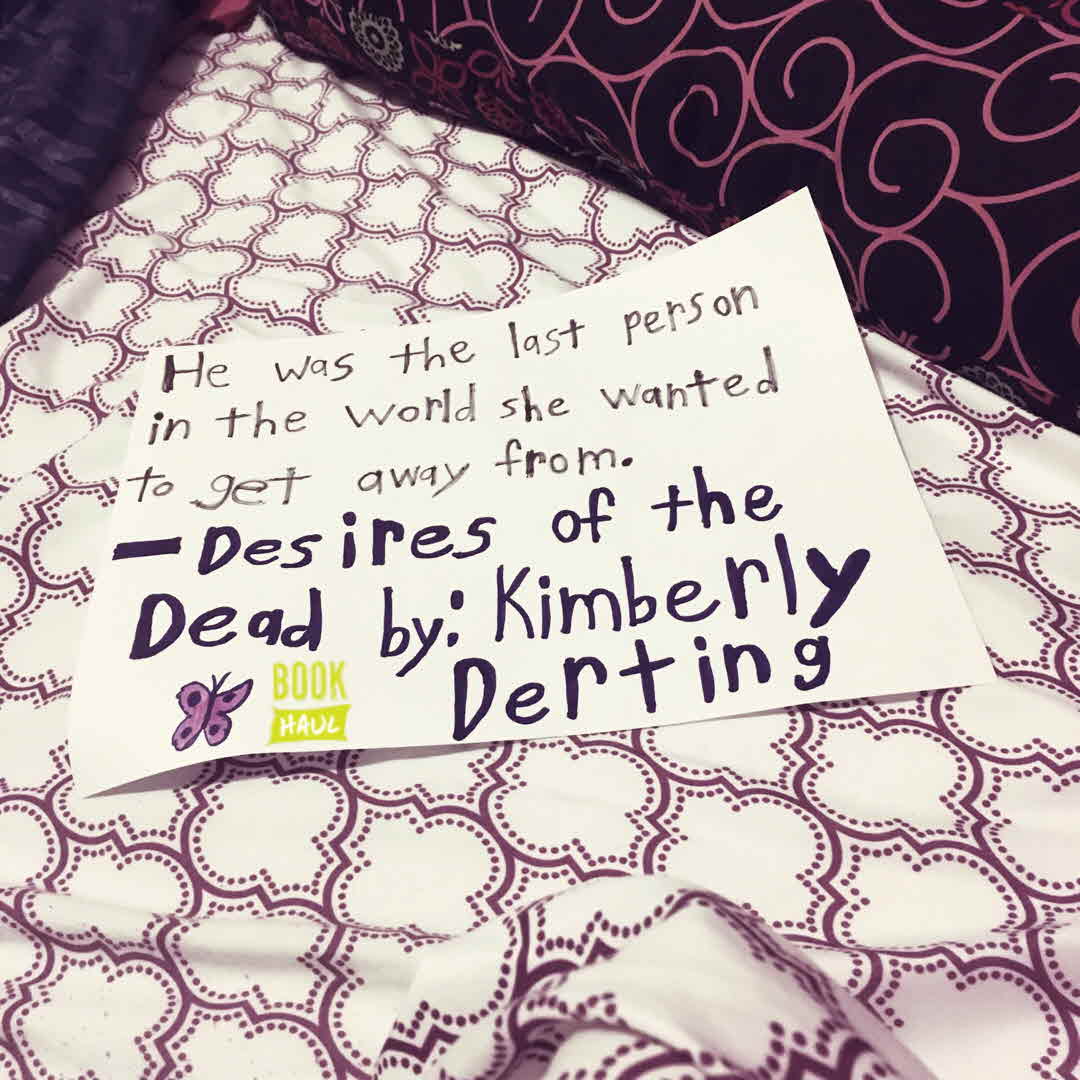 He was the last person
in the world she wanted
to get away from.
— Desires of the
Dead by: Kimberly
Derting
BOOK
HAUL